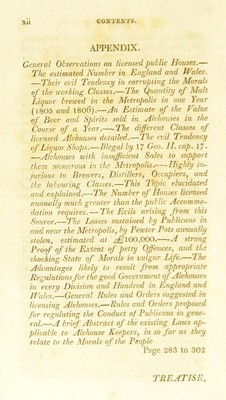 xii CONTENTS.
APPENDIX.
General Observations on licensed public Houses.—
The estimated Number in England and Wales.
—Their evil Tendency in corrupting the Morals
of the working Classes.—The Quantity of Malt
Liquor brewed in the Metropolis in one Year
(1805 and 1806).—An Estimate of the Value
of Beer and Spirits sold in Alehouses in the
Course of a Year.—The different Classes of
licensed Alehouses detailed.—The evil Tendency
of Liquor Shops.—Illegal by 17 Geo. II. cap. 17.
—Alehouses with insufficient Sales to support
them numerous in the Metropolis.—Highly in-
jurious to Brewers, Distillers, Occupiers, and
the labouring Classes.—This Topic elucidated
and explained.—The Number of Houses licensed
annually much greater than the public Accommo-
dation requires.—The Evils arising from this
Source.—The Losses sustained by Publicans in
and near the Metropolis, by Pewter Pots annually
stolen, estimated at £100,000.—A strong
Proof of the Extent of petty Offences, and the
shocking State of Morals in vulgar Life.—The
Advantages likely to result from appropriate
Regulations for the good Government of Alehouses
in every Division and Hundred in England and
Wales.—General Rules and Orders suggested in
licensing Alehouses.—Rules and Orders proposed
for regulating the Conduct of Publicans in gene-
ral.—A brief Abstract of the existing Laws app-
licable to Alehouse Keepers, in so far as they
relate to the Morals of the People
Page 283 to 302
TREATISE,